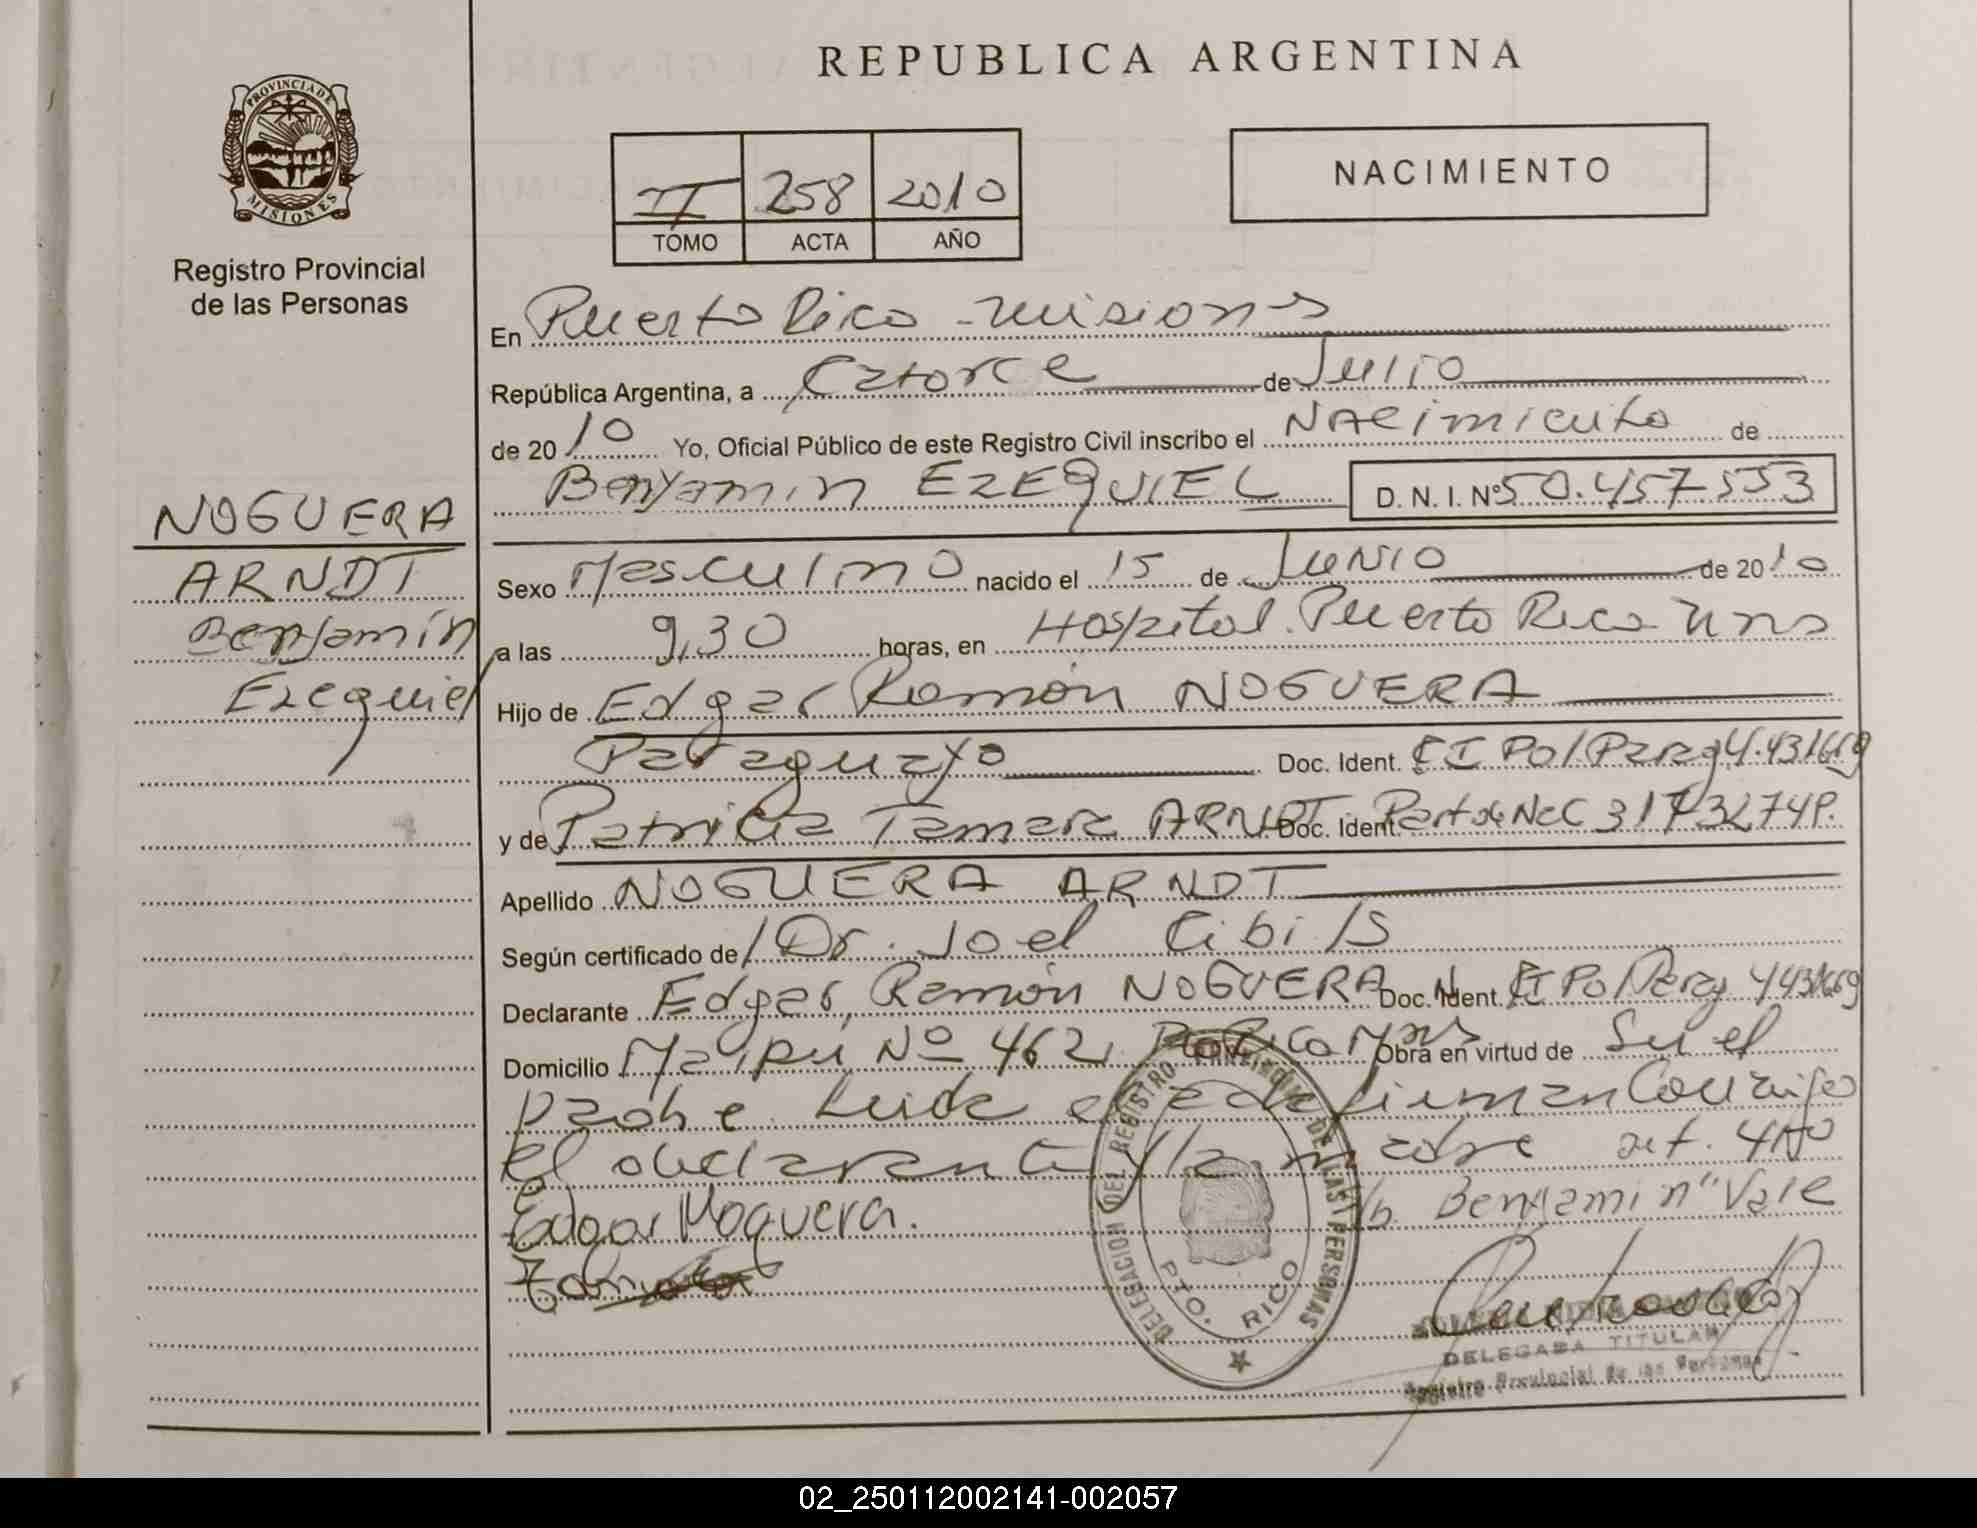 REPUBLICA ARGENTINA
PROVINCIA DE MISIONES
Registro Provincial
de las Personas
II 258 2010
TOMO ACTA AÑO
NACIMIENTO
En Puerto Rico - Misiones
República Argentina, a Catorce de Julio
de 2010 Yo, Oficial Público de este Registro Civil inscribo el Nacimiento de
Benyamin EZEQUIEL D. N. I. Nº 50.457553
NOGUERA
ARNDT
Benjamín
Ezequiel
Sexo Masculino nacido el 15 de Junio de 2010
a las 9,30 horas, en Hospital. Puerto Rico Mns
Hijo de Edgar Ramón NOGUERA
Paraguayo Doc. Ident. CI Pol Parag 4.431669
y de Patricia Tamara ARNDT Doc. Ident. Part de Nac 3173274P.
Apellido NOGUERA ARNDT
Según certificado de Dr. Joel Cibils
Declarante Edgar Ramón NOGUERA Doc. Ident. CI Pol Parag 4431669
Domicilio Maipú Nº 462, Pto Rico Mns Obra en virtud de Su el
padre Leida el acta firman Conmigo
el declarante y la madre
Benjamin" Vale
Edgar Noguera.
DELEGACION DEL REGISTRO PROVINCIAL DE LAS PERSONAS
PTO. RICO
DELEGADA TITULAR
Registro Provincial de las Personas
02_250112002141-002057